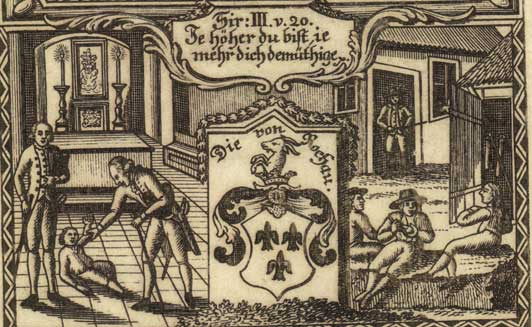 Sir: III. v. 20.
Je höher du bist je
mehr dich demüthige.
Die von Rochau.